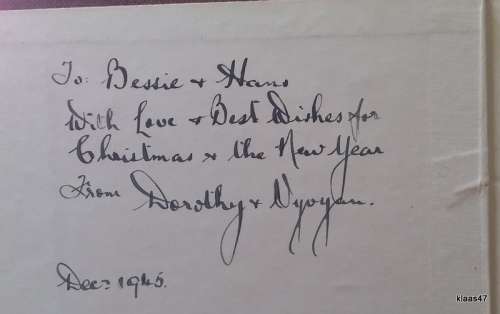 To: Bessie & Hans
With Love & Best Wishes for
Christmas & the New Year
From Dorothy & Vyvyan.
Dec: 1945.
klaas47